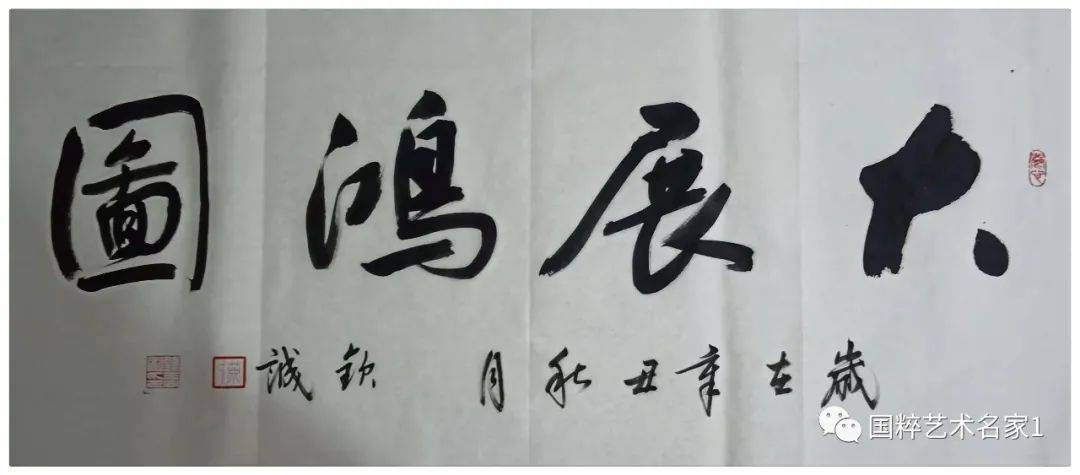 大展鴻圖
歲在辛丑秋月 欽誠
国粹艺术名家1